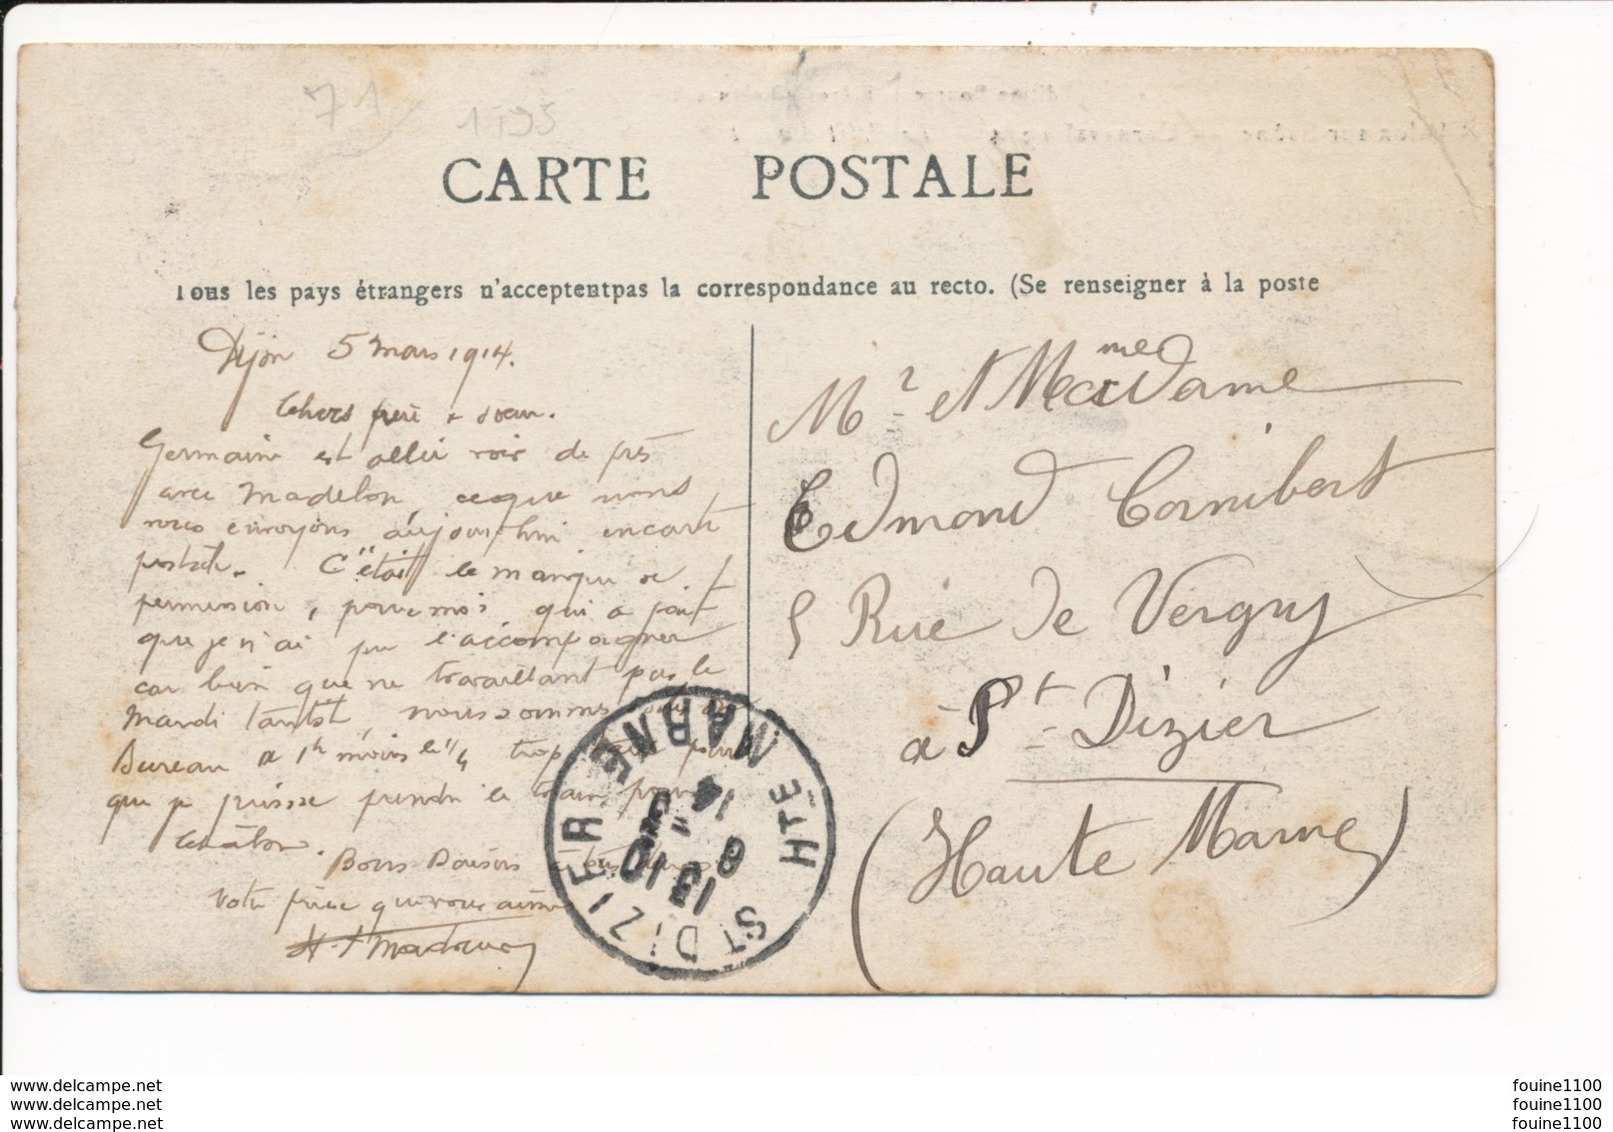 71
1195
CARTE POSTALE
Tous les pays étrangers n'acceptentpas la correspondance au recto. (Se renseigner à la poste
Dijon 5 Mars 1914.
Chers frère + soeur.
Germaine est allée voir de près
avec Madelon, ceque nous
vous envoyons aujourd'hui encarte
postale. C'était le manque de
permission, pour moi qui a fait
que je n'ai pu l'accompagner
car bien que ne travaillant pas le
Mardi tantôt, nous sommes
Bureau à 1h moins le 1/4 trop pour
que je puisse prendre le train pour
Châlon.
Bons Baisers à
Votre frère qui vous aime
Mr et Madame
me
Edmond Cornibert
5 Rue de Vergny
à St-Dizier
(Haute Marne)
ST DIZIER HTE MARNE
13 10
6
14
www.delcampe.net
www.delcampe.net
www.delcampe.net
fouine1100
fouine1100
fouine1100